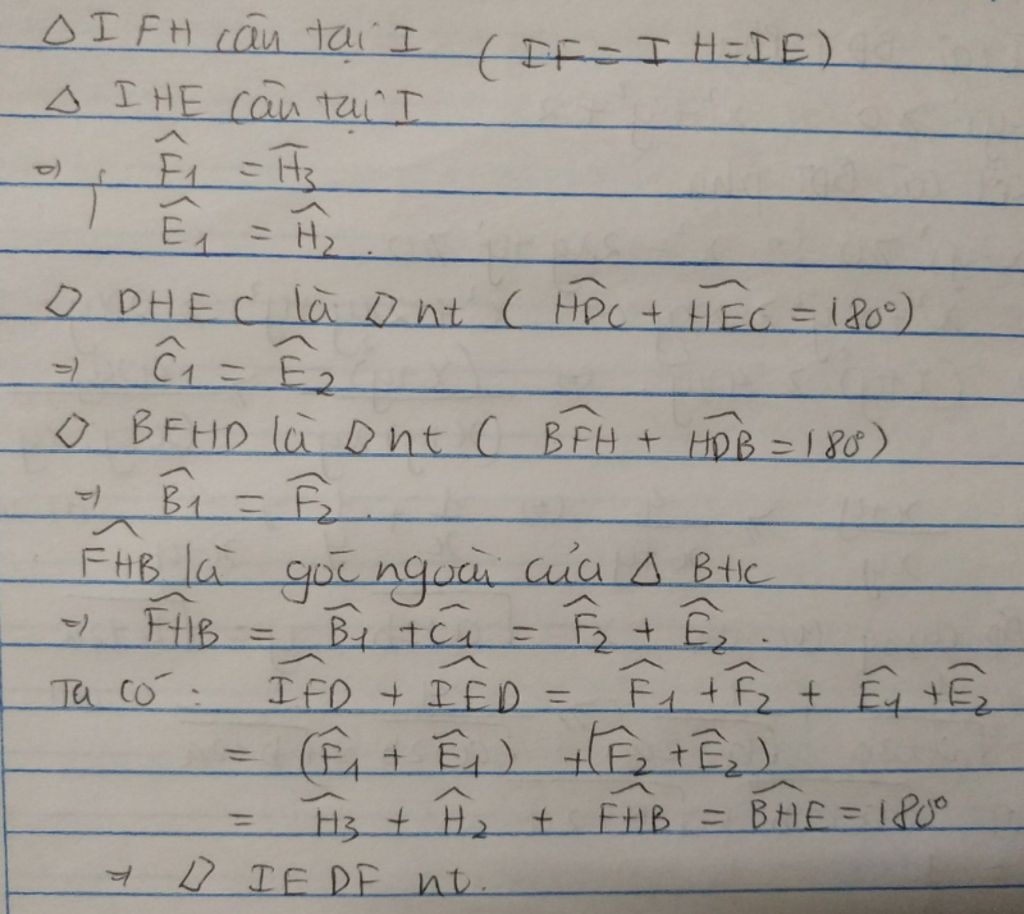 Δ IFH cân tại I (IF = IH = IE)
Δ IHE cân tại I
⇒ F̂1 = Ĥ3
Ê1 = Ĥ2.
◊ DHEC là ◊ nt (HDC + HEC = 180°)
⇒ Ĉ1 = Ê2
◊ BFHD là ◊ nt (BFH + HDB = 180°)
⇒ B̂1 = F̂2.
FHB là góc ngoài của Δ BHC
⇒ FHB = B̂1 + Ĉ1 = F̂2 + Ê2.
Ta có: IFD + IED = F̂1 + F̂2 + Ê1 + Ê2
= (F̂1 + Ê1) + (F̂2 + Ê2)
= Ĥ3 + Ĥ2 + FHB = BHE = 180°
⇒ ◊ IEDF nt.